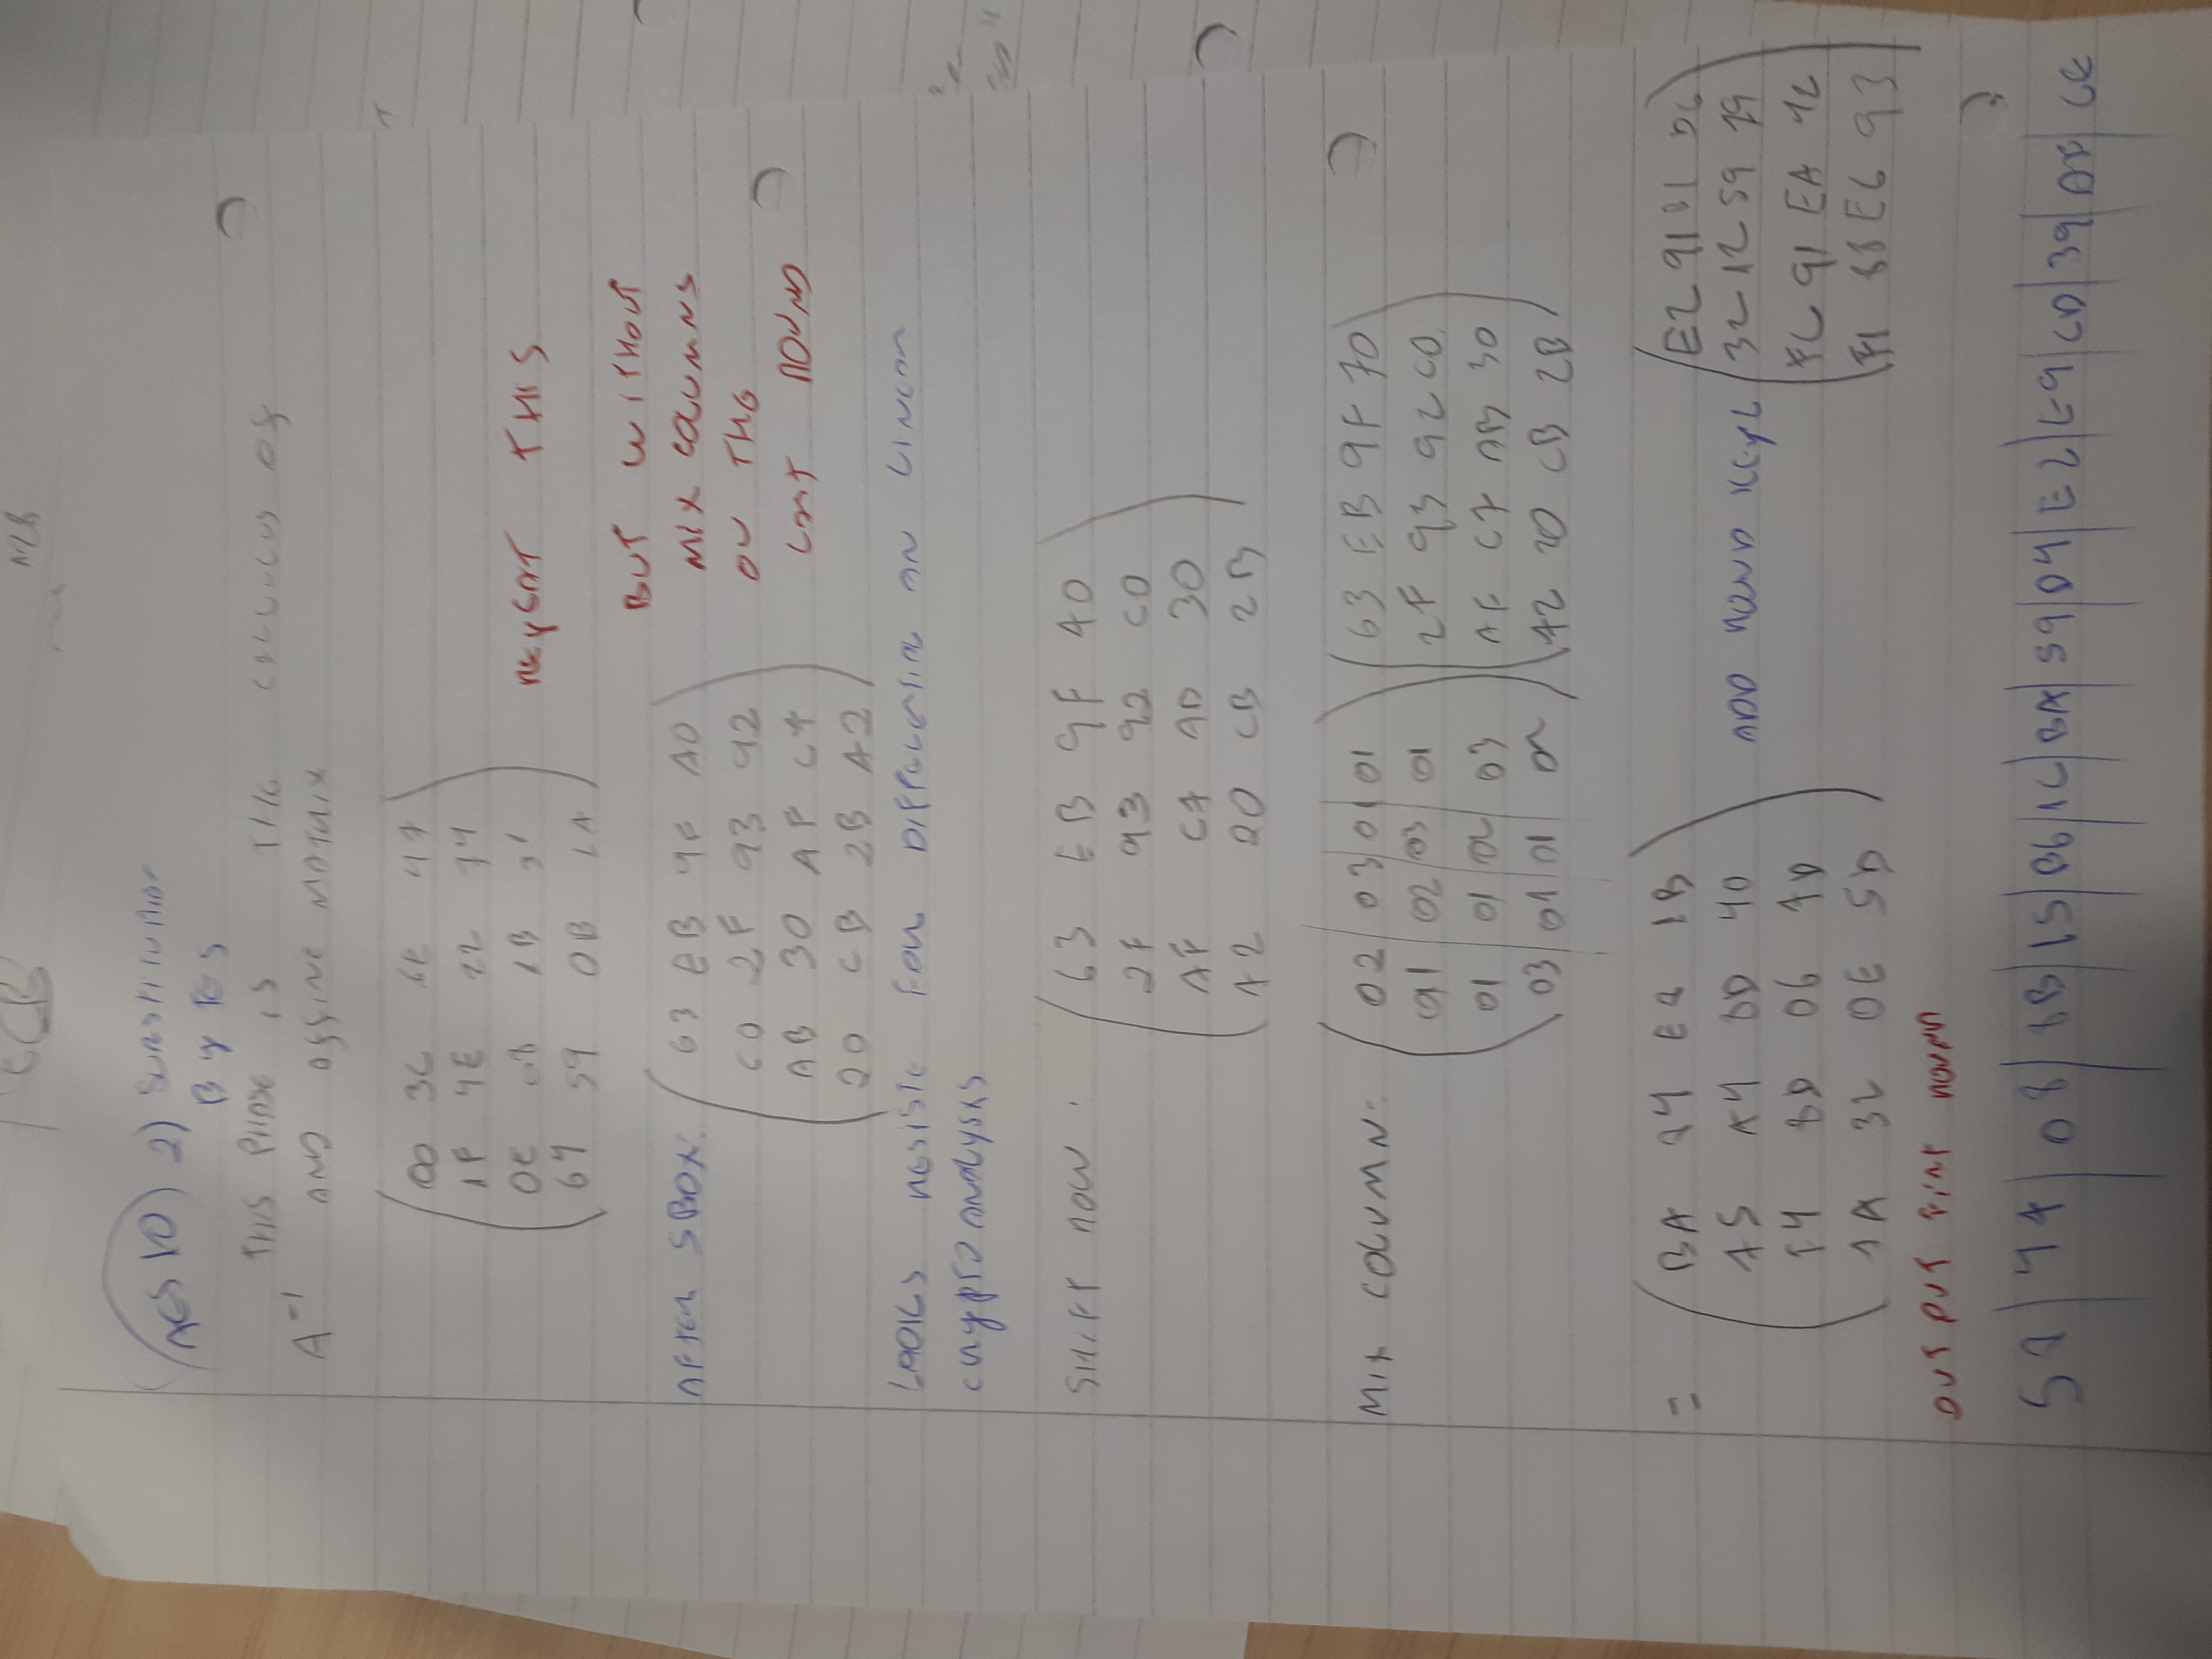 ECB
AES 10 2) SUBSTITUTION
BYTES
THIS PHASE IS THE CALCULUS OF
A⁻¹ AND AFFINE MATRIX
00 3C 6E 47
1F 4E 22 74
0E 08 1B 31
64 59 0B 1A
REPEAT THIS
BUT WITHOUT
MIX COLUMNS
ON THE
LAST ROUND
AFTER SBOX:
63 EB 9F A0
C0 2F 93 92
AB 30 AF C7
20 CB 2B A2
LOOKS RESISTE FOR DIFFERENTIAL AN LINEAR
CRYPTO ANALYSYS
SHIFT ROW :
63 EB 9F A0
2F 93 92 C0
AF C7 AB 30
A2 20 CB 2B
MIX COLUMN:
02 03 01 01 63 EB 9F A0
01 02 03 01 2F 93 92 C0
01 01 02 03 AF C7 AB 30
03 01 01 02 A2 20 CB 2B
=
BA 84 E8 1B
75 A4 8D 40
F4 8D 06 7D
7A 32 0E 5D
ADD ROUND KEY
E2 91 B1 D6
32 12 59 79
FC 91 EA
F1 88 E6 93
OUTPUT ROUND
58 47 08 8B 15 B6 1C BA 59 D4 E2 E9 CD 39 DF CE